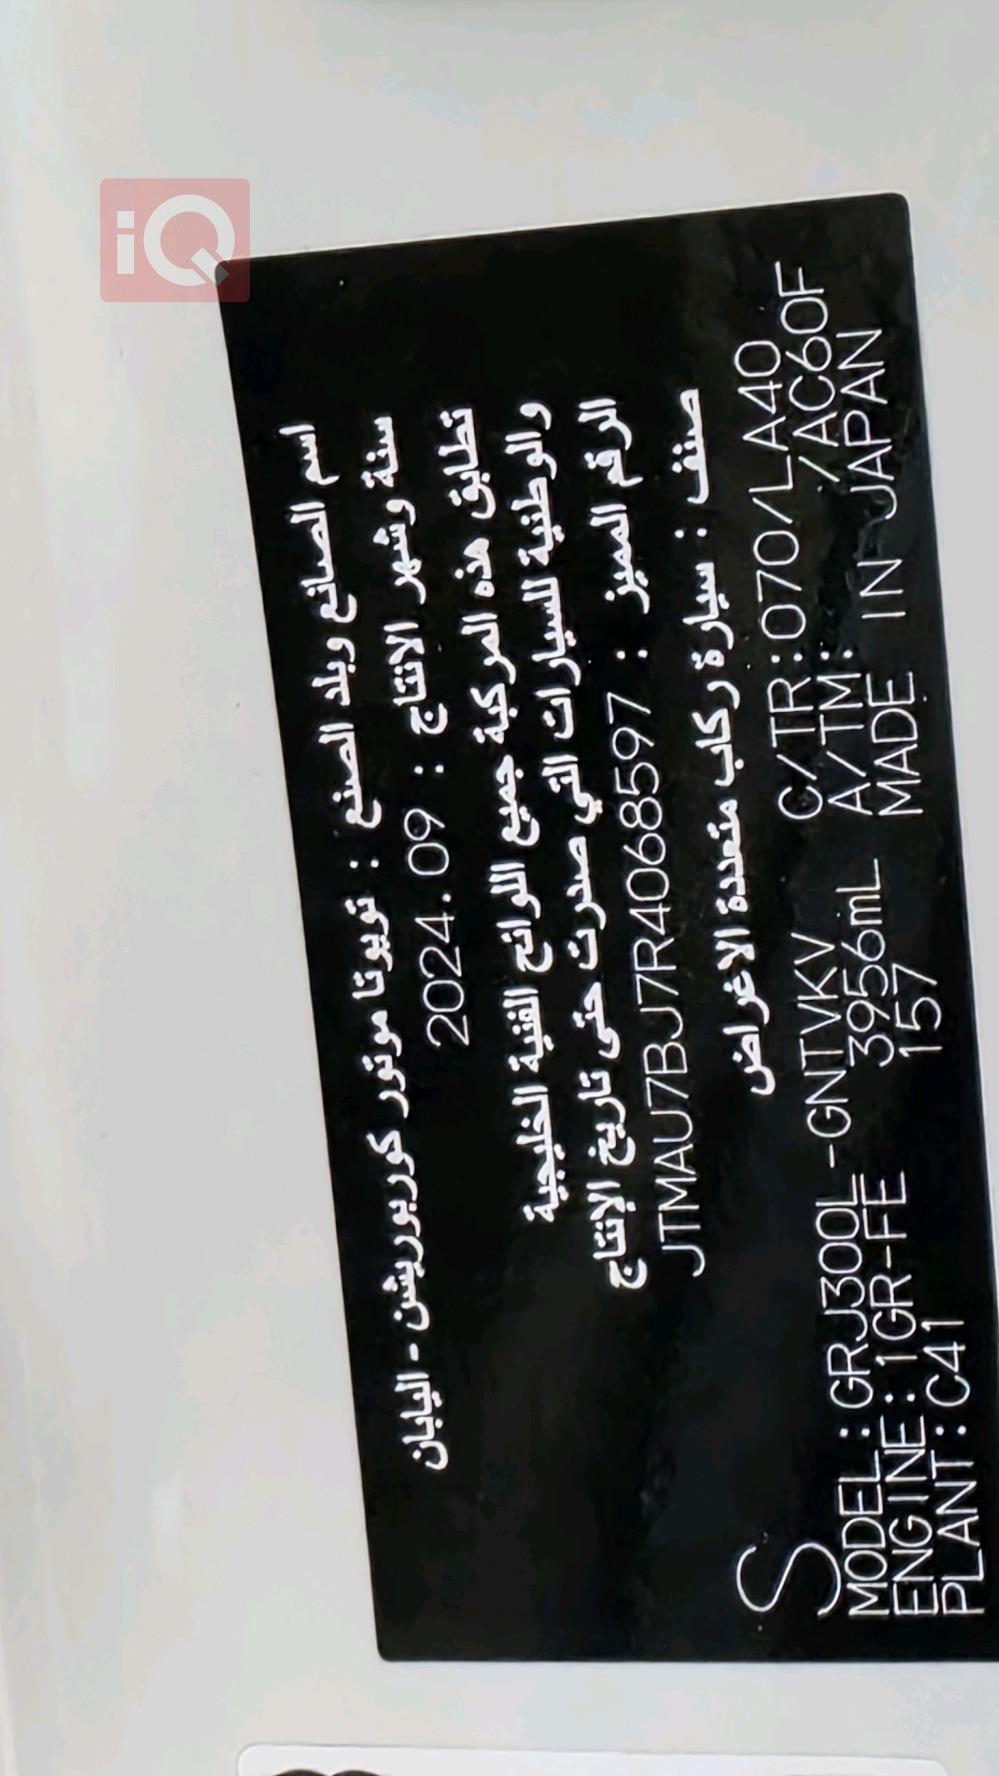 iQ
اسم الصانع وبلد الصنع : تويوتا موتور كوربوريشن - اليابان
سنة وشهر الانتاج : 2024.09
تطابق هذه المركبة جميع اللوائح الفنية الخليجية
والوطنية للسيارات التي صدرت حتى تاريخ الإنتاج
الرقم المميز : JTMAU7BJ7R4068597
صنف : سيارة ركاب متعددة الاغراض
S
MODEL:GRJ300L-GNTVKV C/TR:070/LA40
ENGINE:1GR-FE 3956mL A/TM: /AC60F
PLANT:C41 157 MADE IN JAPAN